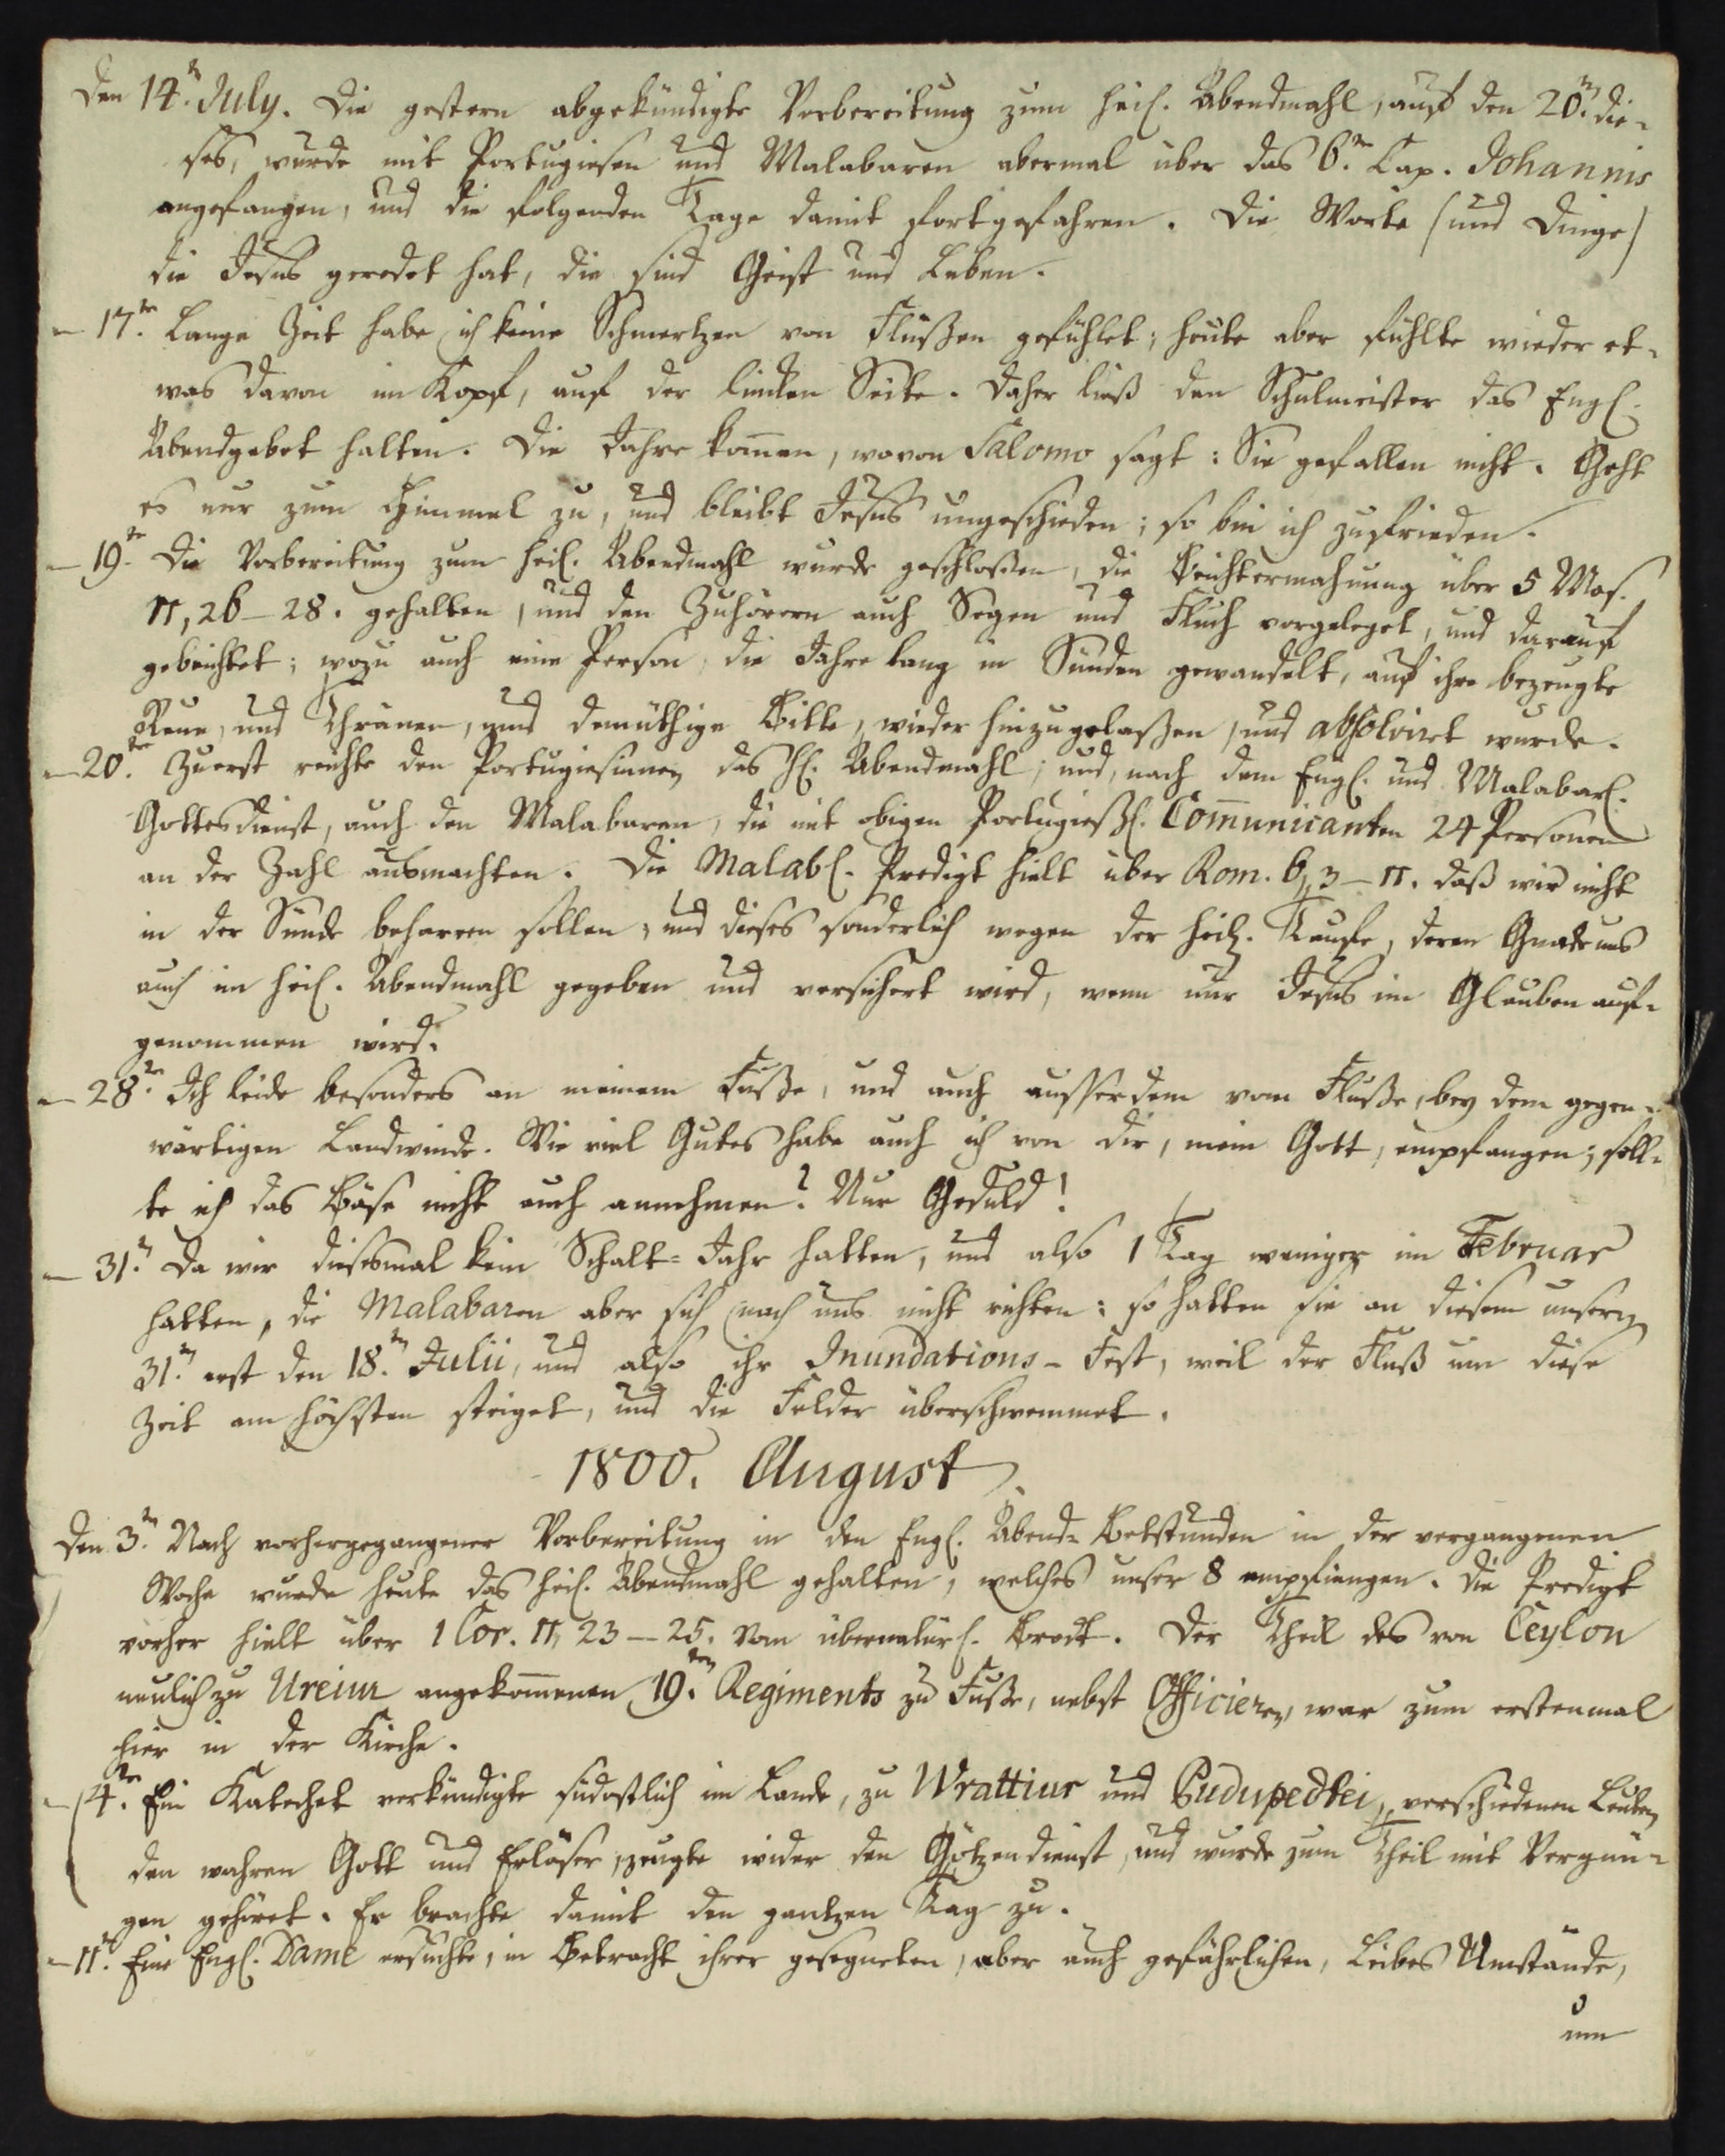 Den 14.n July. Die gestern abgekündigte Vorbereitung zum heil. Abendmahl, auf den 20.n die-
ses, wurde mit Portugiesen und Malabaren abermal über das 6.te Cap. Johannis
angefangen, und die folgenden Tage damit fortgefahren. Die Worte (und Dinge)
die Jesus geredet hat, die sind Geist und Leben.
– 17.ten Lange Zeit habe ich keine Schmertzen von Flüßen gefühlet; heute aber fühlte wieder et-
was davon im Kopf, auf der linken Seite. Daher ließ den Schulmeister das Engl.
Abendgebet halten. Die Jahre kom̄en, wovon Salomo sagt: Sie gefallen nicht. Geht
es nur zum Himmel zu, und bleibt Jesus ungeschieden; so bin ich zufrieden.
– 19.ten Die Vorbereitung zum heil. Abendmahl wurde geschloßen, die Beichtermahnung über 5 Mos.
11, 26–28. gehalten, und den Zuhörern auch Segen und Fluch vorgeleget, und darauf
gebeichtet; wozu auch eine Person, die Jahre lang in Sünden gewandelt, auf ihre bezeugte
Reue, und Thränen, und demüthige Bitte, wieder hinzugelaßen, und absolvirt wurde.
– 20.ten Zuerst reichte den Portugiesinnen das Hl. Abendmahl; und, nach dem Engl. und Malabarl.
Gottesdienst, auch den Malabaren, die mit obigen Portugießl. Com̄unicanten 24 Personen
an der Zahl ausmachten. Die Malabl. Predigt hielt über Rom. 6, 3–11. daß wir nicht
in der Sünde beharren sollen, und dieses sonderlich wegen der heil. Taufe, deren Gnade uns
auch im heil. Abendmahl gegeben und versichert wird, wenn nur Jesus im Glauben auf-
genommen wird.
– 28.ten Ich leide besonders an meinem Fuße, und auch ausserdem vom Fluße, bey dem gegen-
wärtigen Landwinde. Wie viel Gutes habe auch ich von dir, mein Gott, empfangen; soll-
te ich das Böse nicht auch annehmen? Nur Geduld!
– 31.n Da wir diesesmal kein Schalt-Jahr hatten, und also 1 Tag weniger im Februar
hatten, die Malabaren aber sich nach uns nicht richten: so hatten sie an diesem unserm
31.n erst den 18.n Julii, und also ihr Inundations-Fest, weil der Fluß um diese
Zeit am höchsten steiget, und die Felder überschwemmet.
1800. August
Den 3.n Nach vorhergegangener Vorbereitung in den Engl. Abend-Betstunden in der vergangenen
Woche wurde heute das heil. Abendmahl gehalten, welches unser 8 empfiengen. Die Predigt
vorher hielt über 1 Cor. 11, 23–25. vom übernatürl. Brodt. Der Theil des von Ceylon
neulich zu Ureiur angekom̄enen 19.ten Regiments zu Fuße, nebst Officieren, war zum erstenmal
hier in der Kirche.
– 4.ten Ein Katechet verkündigte südostlich im Lande, zu Wrattiur und Pudupedtei, verschiedenen Leuten
den wahren Gott und Erlöser, zeugte wider den Götzendienst, und wurde zum Theil mit Vergnü-
gen gehöret. Er brachte damit den gantzen Tag zu.
– 11.ten Eine Engl. Dame ersuchte, in Betracht ihrer gesegneten, aber auch gefährlichen, Leibes Umstände,
um